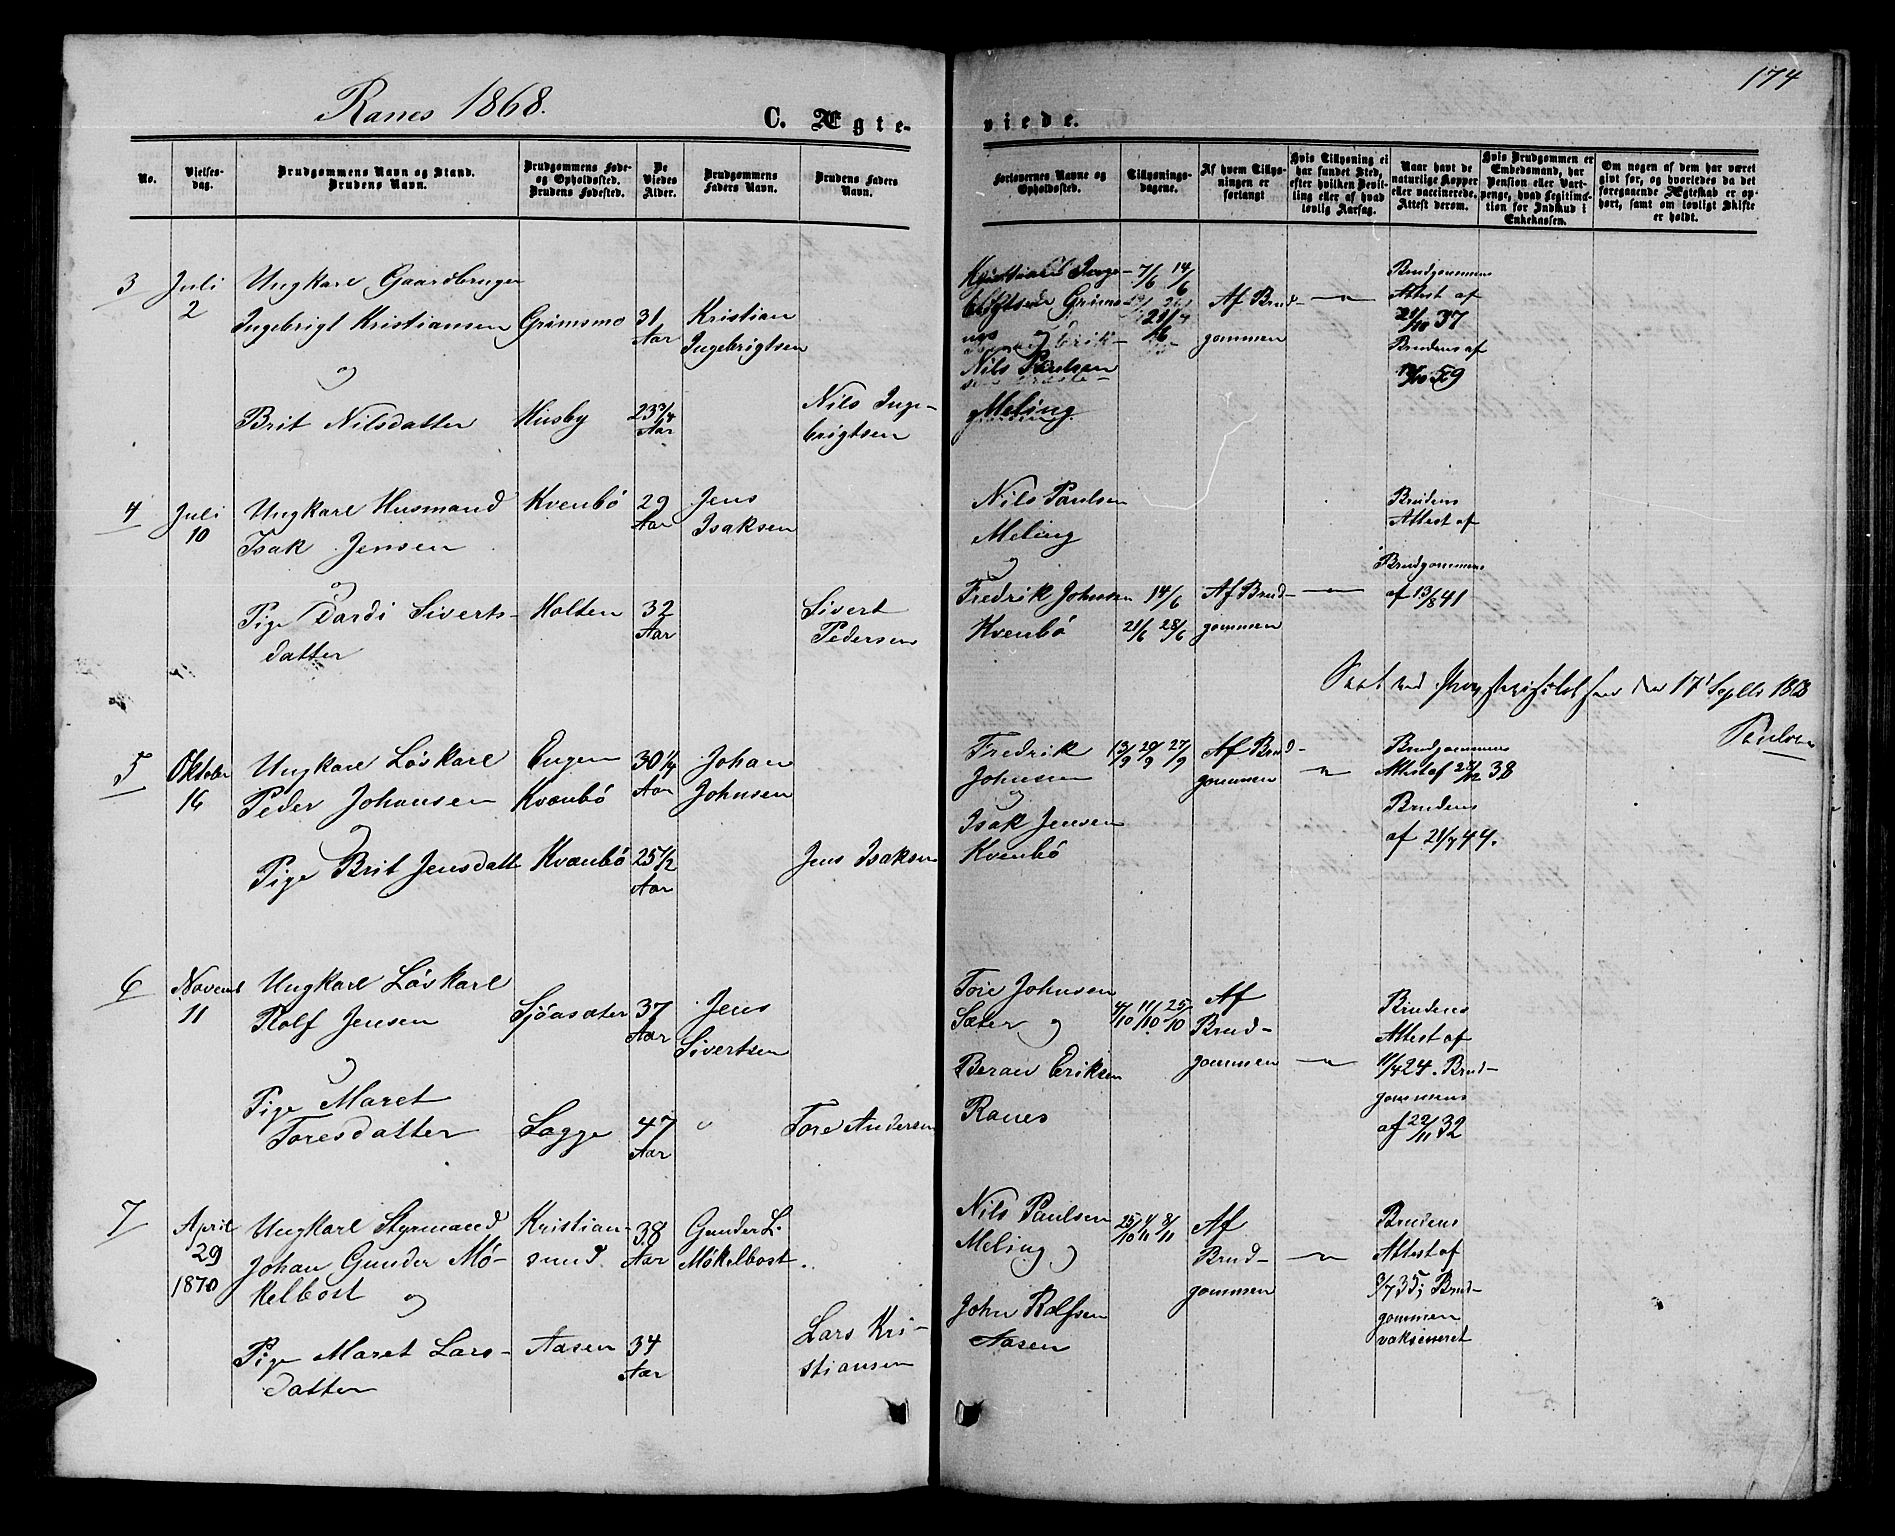 174
Ranes 1868.
C. Ægteviede.
No.
Vielses-
dag.
Brudgommens Navn og Stand.
Brudens Navn.
Brudgommens Føde-
og Opholdssted.
Brudens Fødested.
De
Viedes
Alder.
Brudgommens
Faders Navn.
Brudens Faders
Navn.
Forlovernes Navne og
Opholdssted.
Tillysnings-
dagene.
Af hvem Tillys-
ningen er
forlangt
Hvis Tillysning ei
har fundet Sted,
efter hvilken Bevil-
ling eller af hvad
lovlig Aarsag.
Naar havt de
naturlige Kopper
eller vaccinerede.
Attest derom.
Hvis Brudgommen er
Embedsmand, har
Pension eller Vart-
penge, hvad Legitima-
tion for Indskud i
Enkekassen.
Om nogen af dem har været
gift før, og hvorledes da det
foregaaende Ægteskab er op-
hørt, samt om lovligt Skifte
er holdt.
3
Juli
2
Ungkarl Gaardbruger
Ingebrigt Kristiansen
og
Brit Nilsdatter
Grimsmo
Husby
31
Aar
23 3/4
Aar
Kristian
Ingebrigtsen
Nils Inge-
brigtsen
Kristian Inge-
Grimsmo
og
Nils Paulsen
Meling.
7/6 14/6
21/6
Af Brud-
gommen
Brudgommens
Attest af
37
Brudens af
59
4
Juli
10
Ungkarl Husmand
Isak Jensen
og
Pige Dardi Siverts-
datter
Kvenbö
Holten
29
Aar
32
Aar
Jens
Isaksen
Sivert
Pedersen
Nils Paulsen
Meling
og
Fredrik Johnsen
Kvenbö
14/6
21/6 28/6
Af Brud-
gommen
Brudens
Attest af
Brudgommens
af 13/8 41
17 Septb 1868
5
Oktober
16
Ungkarl Löskarl
Peder Johansen
og
Pige Brit Jensdatt
Engen
Kvænbö
Kvænbö
30 1/4
Aar
25 1/2
Aar
Johan
Johnsen
Jens Isaksen
Fredrik
Johnsen
og
Isak Jensen
Kvenbö
13/9 20/9 27/9
Af Brud-
gommen
Brudgommens
Attest af 28/12 38
Brudens
af 21/7 44.
6
Novemb
11
Ungkarl Löskarl
Rolf Jensen
og
Pige Maret
Toresdatter
Sjöasæter
Lagge
37
Aar
47
Aar
Jens
Sivertsen
Tore Andersen
Tore Johnsen
Sæter og
Beran Eriksen
Ranes
4/10 11/10 25/10
Af
Brud-
gommen
Brudens
Attest af
11/4 24. Brud-
gommens
af 22/11 32
7
April
29
1870
Ungkarl Styrmand
Johan Gunder Mö-
kelbost og
Pige Maret Lars-
datter
Kristian-
sund.
Aasen
38
Aar
34
Aar
Gunder L.
Mökelbost.
Lars Kri-
stiansen
Nils Paulsen
Meling og
John Rolfsen
Aasen
25/10 1/11 8/11
Af
Brud-
gommen
Brudens
Attest af
3/7 35; Brud-
gommen
vaksineret